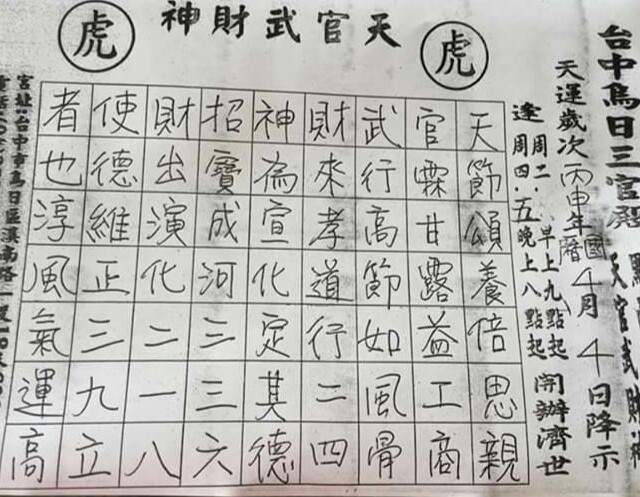 台中烏日三官殿
天運歲次丙申年國曆4月4日降示
逢周二．早上九點起
周四．五晚上八點起
開辦濟世
虎 天官武財神 虎
天節頌養倍思親
官霖甘露益工商
武行高節如風骨
財來孝道行二四
神為宣化定其德
招寶成河三三六
財出演化二一八
使德維正三九立
者也淳風氣運高
宮址：台中市烏日區溪南路一段